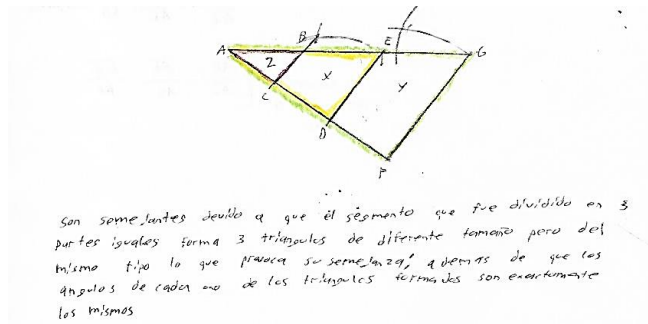 B
E
A
G
Z
X
Y
C
D
F
Son semejantes devido a que el segmento que fue dividido en 3
partes iguales forma 3 triangulos de diferente tamaño pero del
mismo tipo lo que provoca su semejanza, ademas de que los
angulos de cada uno de los triangulos formados son exactamente
los mismos